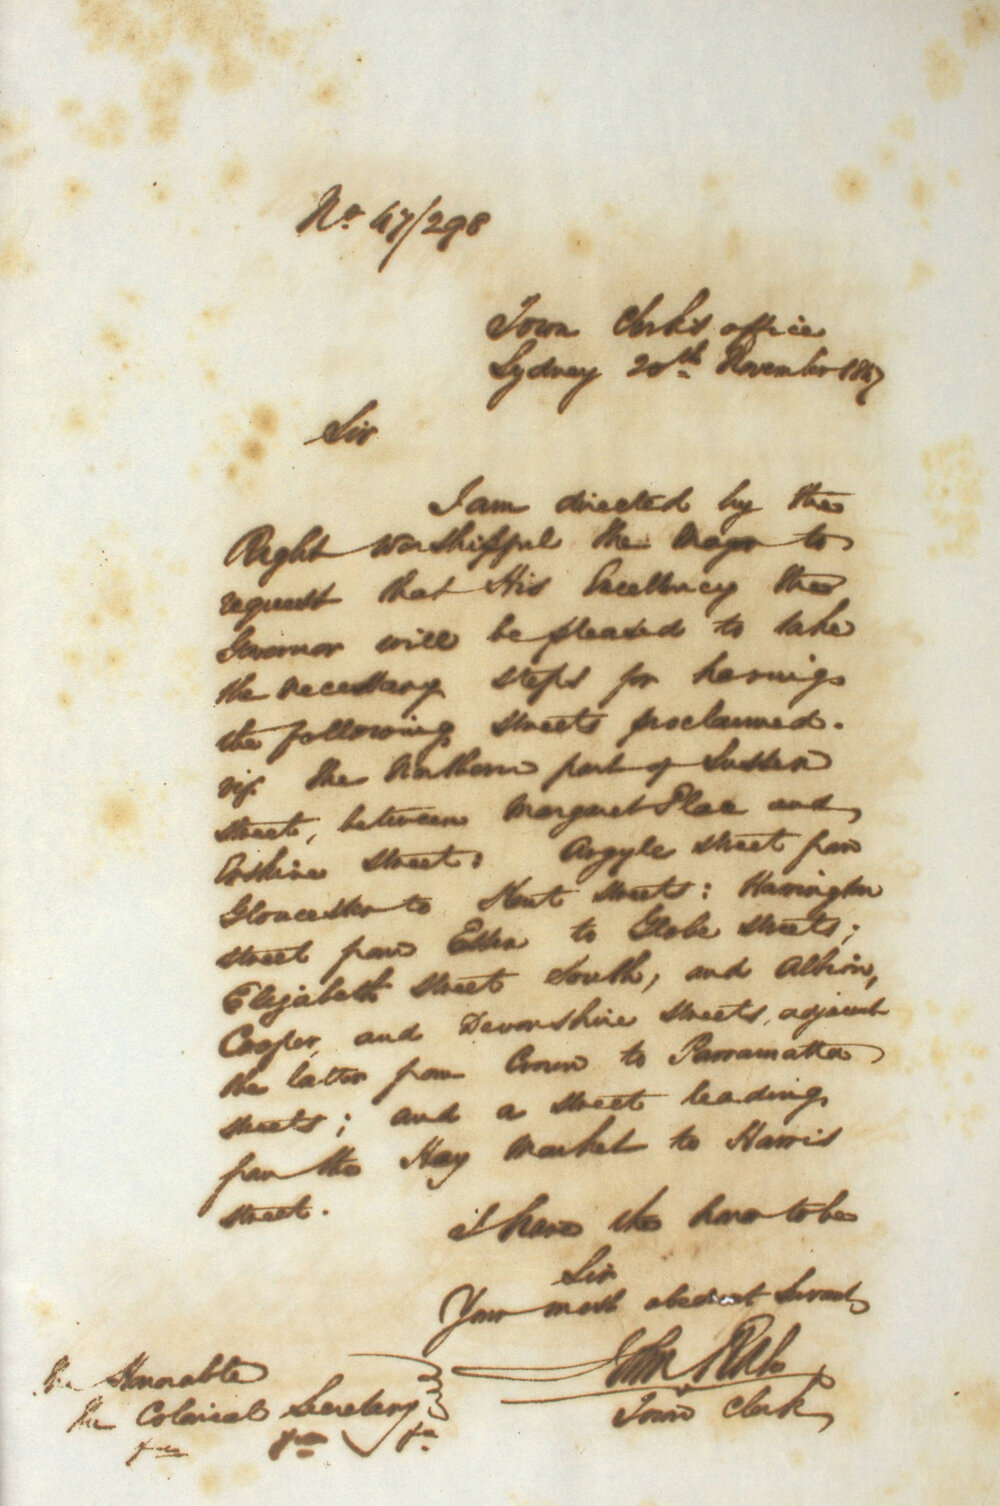 No. 47/298
Town Clerk's office
Sydney 20th November 1847
Sir
I am directed by the
Right Worshipful the Mayor to
request that His Excellency the
Governor will be pleased to take
the necessary steps for having
the following streets proclaimed.
viz. the Northern part of Sussex
street, between Margaret Place and
Erskine street: Argyle street from
Gloucester to Kent streets: Harrington
street from Essex to Globe streets;
Elizabeth street South, and Albion,
Cooper, and Devonshire streets, adjacent
the latter from Crown to Parramatta
streets; and a street leading
from the Hay Market to Harris
street.
I have the honor to be
Sir
Your most obedient Servant
John
Town Clerk
The Honorable
The Colonial Secretary